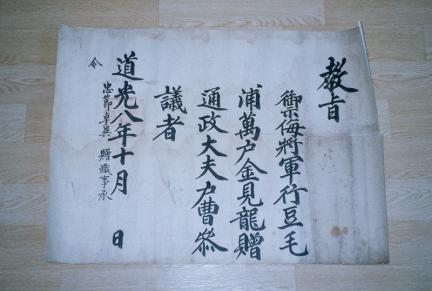 教旨
禦侮將軍行豆毛
浦萬戶金見龍贈
通政大夫戶曹叅
議者
道光八年十月 日
忠節卓異 贈職事承
令